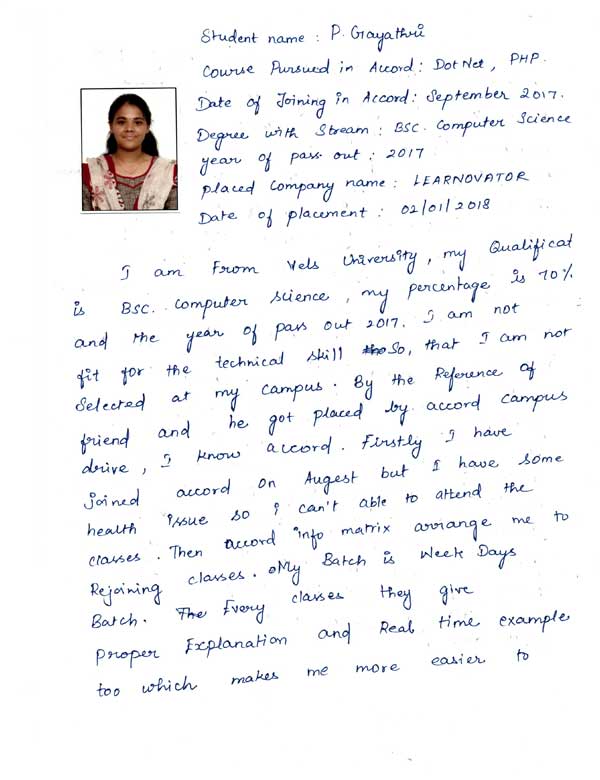 Student name : P. Gayathri
Course Pursued in Accord : Dot Net, PHP.
Date of Joining in Accord : September 2017.
Degree with Stream : BSC. Computer Science
year of pass out : 2017
placed Company name : LEARNOVATOR
Date of placement : 02/01/2018
I am From Vels University, my Qualificat
is BSC. Computer Science, my percentage is 70%
and the year of pass out 2017. I am not
fit for the technical skill So, that I am not
Selected at my campus. By the Reference of
friend and he got placed by accord campus
drive, I know accord. Firstly I have
joined accord on Augest but I have some
health issue so i can't able to attend the
classes. Then accord info matrix arrange me to
Rejoining classes. My Batch is Week Days
Batch. The Every classes they give
proper Explanation and Real time example
too which makes me more easier to